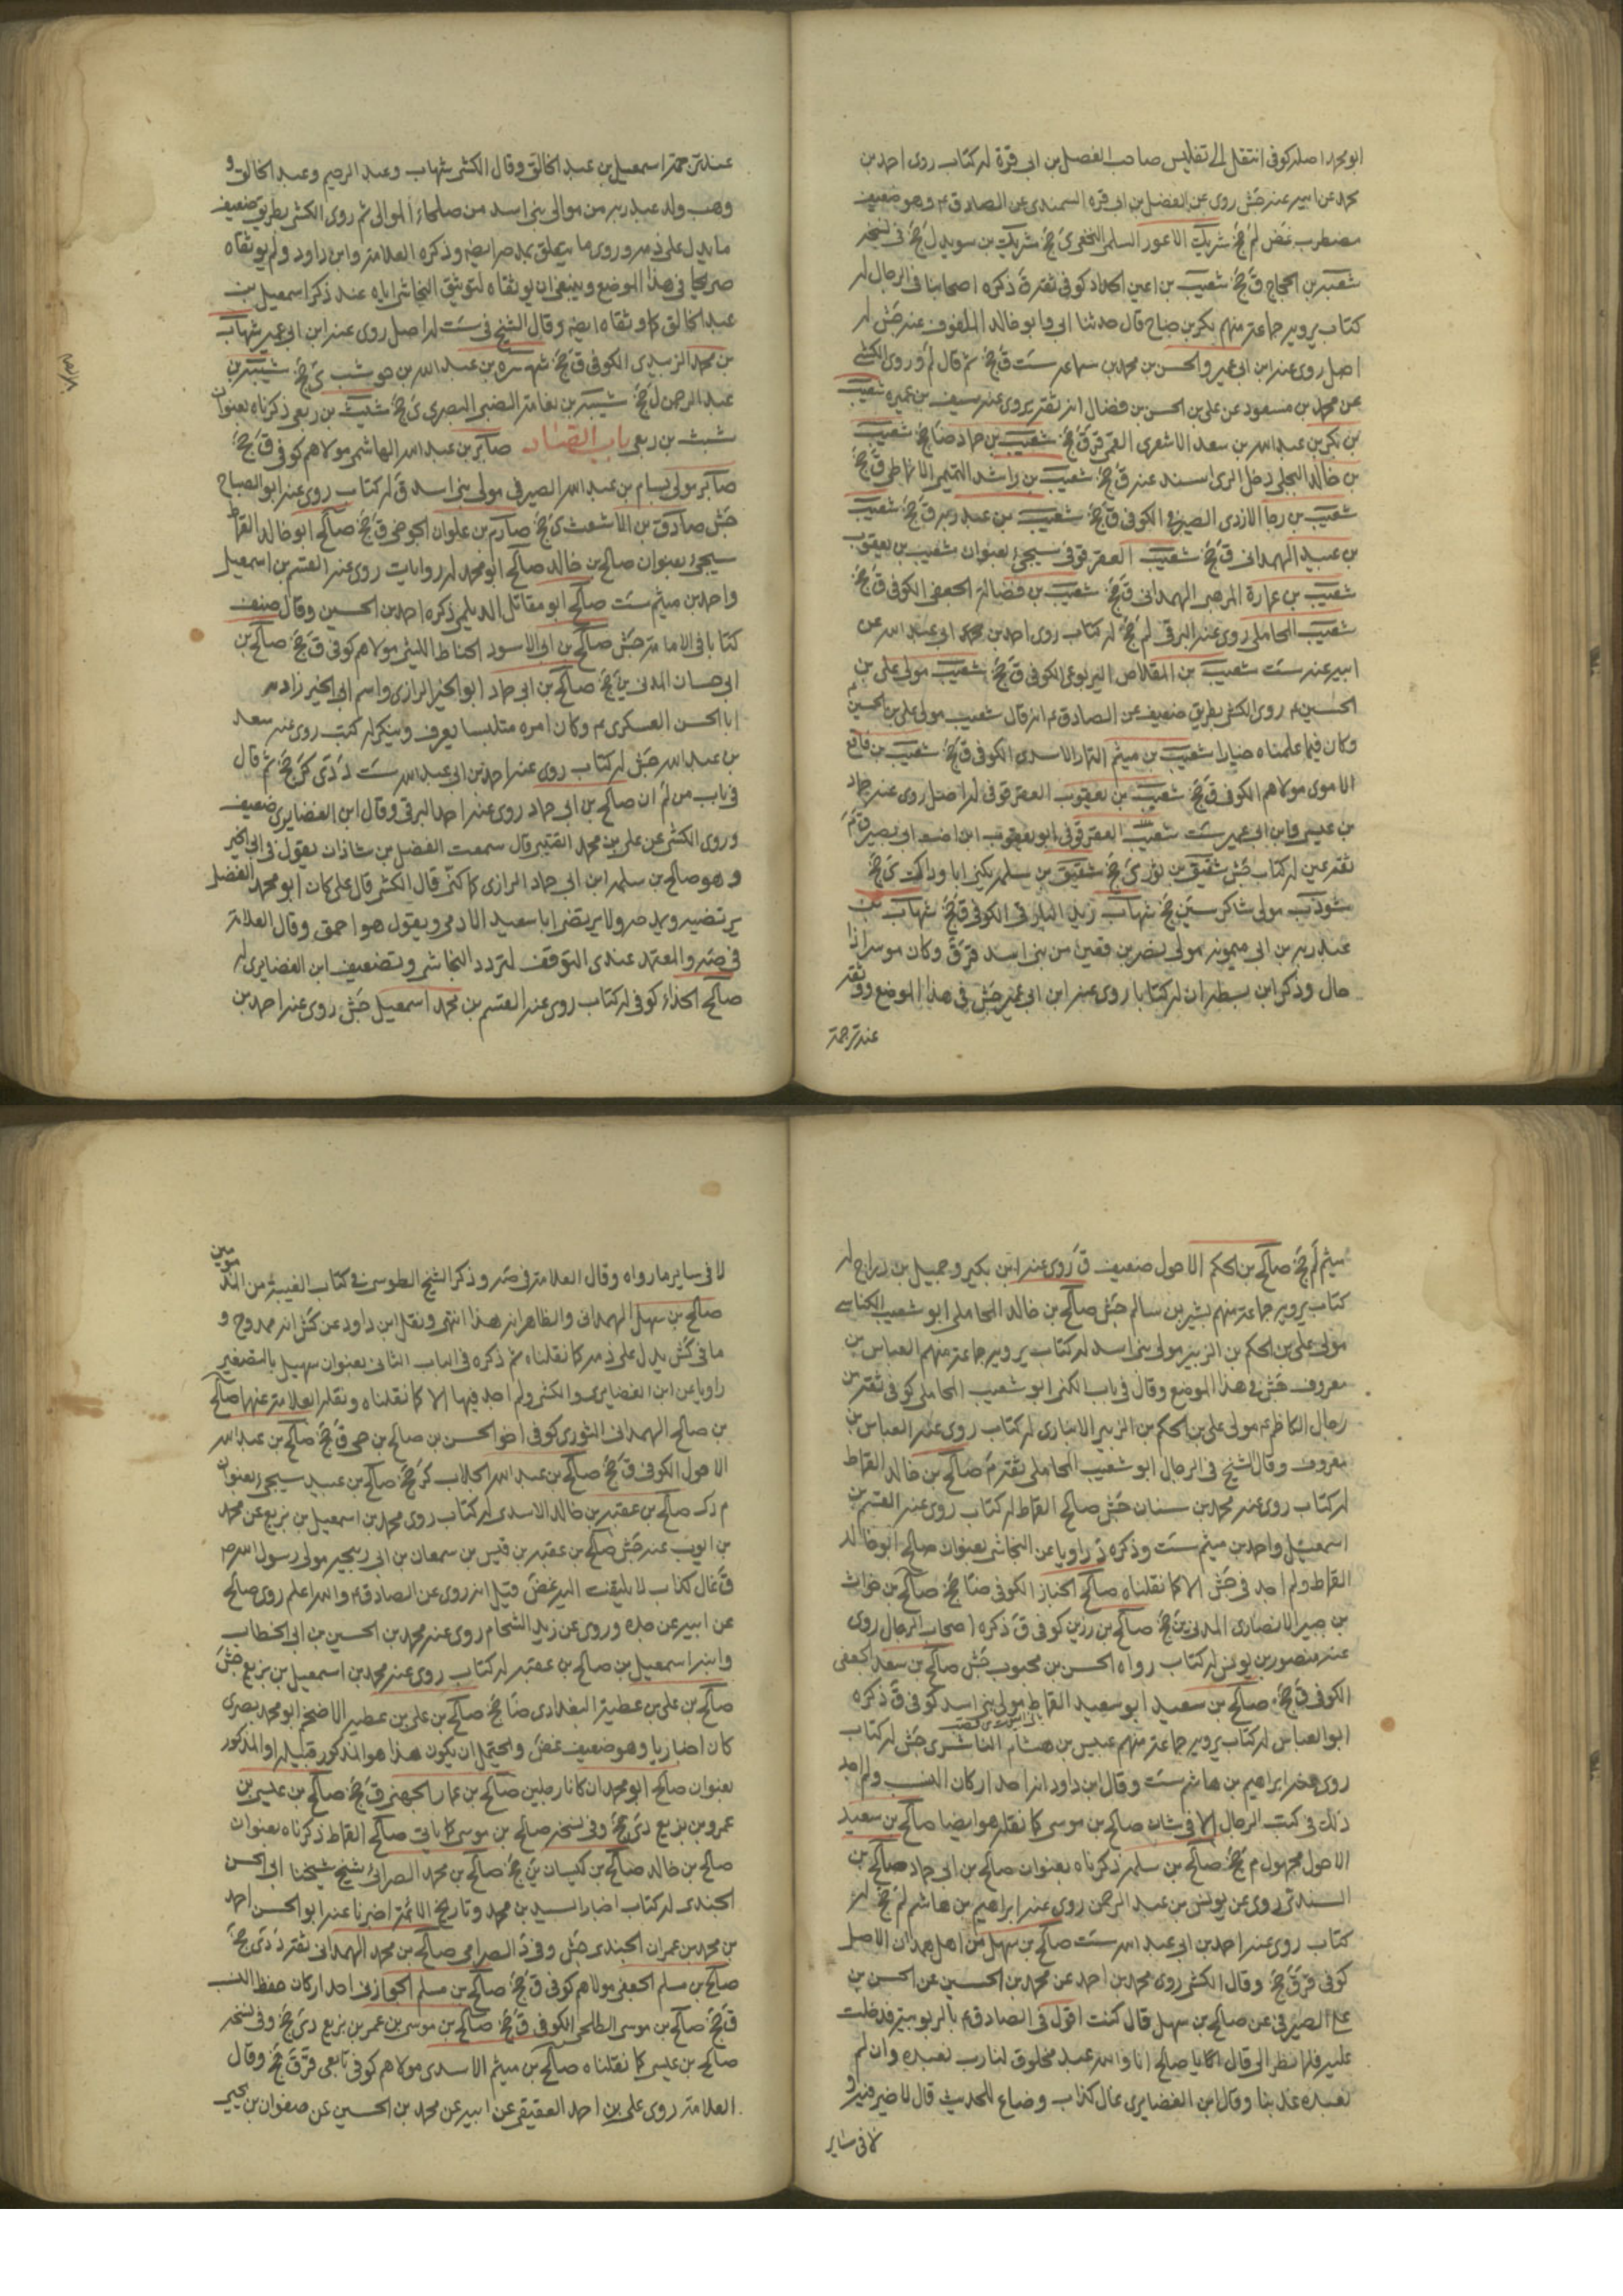 ابومحمد اصله كوفى انتقل الى تفليس صاحب الفضل بن ابى قرة له كتاب روى احمد بن
محمد عن ابيه عنه جش روى عن الفضل بن ابى قره السمندى عن الصادق ع وهو ضعيف
مضطرب غض لم جخ شريك الاعور السلمى النخعى ى جخ شريك بن سويد ل جخ فى نسخه
شعبه بن الحجاج ق جخ شعيب بن اعين الحداد كوفى ثقه ق ذكره اصحابنا فى الرجال له
كتاب يرويه جماعة منهم بكر بن جناح قال حدثنا ابى وابو خالد المكفوف عنه جش له
اصل روى عنه ابن ابى عمير والحسن بن محمد بن سماعه ست ق جخ ثم قال لم وروى الكشى
عن محمد بن مسعود عن على بن الحسن بن فضال انه ثقه يروى عنه سيف بن عميره شعيب
بن بكر بن عبد الله بن سعد الاشعرى القمى قر ق جخ شعيب بن حماد ضا جخ شعيب
بن خالد البجلى دخل الرى اسند عنه ق جخ شعيب بن راشد التميمى الانماطى ق جخ
شعيب بن رجا الازدى الصيرفى الكوفى ق جخ شعيب بن عبد ربه ق جخ شعيب
بن عبيد الهمدانى ق جخ شعيب العقرقوفى سيجئ بعنوان شعيب بن يعقوب
شعيب بن عمارة المرهبى الهمدانى ق جخ شعيب بن فضالة الجعفى الكوفى ق جخ
شعيب المحاملى روى عنه البرقى لم جخ له كتاب روى احمد بن محمد ابى عبد الله عن
ابيه عنه ست شعيب بن المقلاص اليربوعى الكوفى ق جخ شعيب مولى على بن
الحسين ع روى الكشى بطريق ضعيف عن الصادق ع انه قال شعيب مولى على بن الحسين
وكان فيما علمناه خيارا شعيب بن ميثم التمار الاسدى الكوفى ق جخ شعيب بن نافع
الاموى مولاهم الكوفى ق جخ شعيب بن يعقوب العقرقوفى له اصل روى عنه حماد
بن عيسى وابن ابى عمير ست شعيب العقرقوفى ابو يعقوب ابن اخت ابى بصير ق م
ثقه عين له كتاب جش شقيق بن ثور ى جخ شقيق بن سلمه يكنى ابا وداك ى جخ
شوذب مولى شاكر سين جخ شهاب بن زيد البارقى الكوفى ق جخ شهاب بن
عبد ربه بن ابى ميمونه مولى نصر بن قعين من بنى اسد قر ق وكان موسرا ذا
حال وذكر ابن بطه ان له كتابا روى عنه ابن ابى عمير جش فى هذا الموضع ووثقه
عند ترجمة
عند ترجمة اسمعيل بن عبد الخالق وقال الكشى شهاب وعبد الرحيم وعبد الخالق و
وهب ولد عبد ربه من موالى بنى اسد من صلحاء الموالى ثم روى الكشى بطريق ضعيف
ما يدل على ذمه وروى ما يتعلق بمدحه ايضه وذكره العلامة وابن داود ولم يوثقاه
صريحا فى هذا الموضع وينبغى ان يوثقاه لتوثيق النجاشى اياه عند ذكر اسمعيل بن
عبد الخالق كما وثقاه ايضه وقال الشيخ فى ست له اصل روى عنه ابن ابى عمير شهاب
بن محمد الزبيدى الكوفى ق جخ شهره بن عبد الله بن حوشب ى جخ شيبه بن
عبد الرحمن ل جخ شيبه بن نعامة الضبى البصرى ى جخ شيث بن ربعى ذكرناه بعنوان
شبث بن ربعى باب الصاد صابر بن عبد الله الهاشمى مولاهم كوفى ق جخ
صابر مولى بسام بن عبد الله الصيرفى مولى بنى اسد ق له كتاب روى عنه ابو الصباح
جش صادق بن الاشعث ى جخ صارم بن علوان الجوخى ق جخ صالح ابو خالد القماط
سيجئ بعنوان صالح بن خالد صالح ابو محمد له روايات روى عنه القسم بن اسمعيل
واحمد بن ميثم ست صالح ابو مقاتل الديلمى ذكره احمد بن الحسين وقال صنف
كتابا فى الامامة جش صالح بن ابى الاسود الحناط الليثى مولاهم كوفى ق جخ صالح بن
ابى حسان المدنى ين جخ صالح بن ابى حماد ابو الخير الرازى واسم ابى الخير زاد
ابا الحسن العسكرى ع وكان امره متلبسا يعرف وينكر له كتب روى عنه سعد
بن عبد الله جش له كتاب روى عنه احمد بن ابى عبد الله ست د دى كر جخ ثم قال
فى باب من لم ان صالح بن ابى حماد روى عنه احمد البرقى وقال ابن الغضايرى ضعيف
وروى الكشى عن على بن محمد القتيبى قال سمعت الفضل بن شاذان يقول فى ابى الخير
وهو صالح بن سلمه ابن ابى حماد الرازى كما كنى قال الكشى قال على كان ابو محمد الفضل
يرتضيه ويمدحه ولا يرتضى ابا سعيد الادمى ويقول هو احمق وقال العلامة
فى صه والمعتمد عندى التوقف لتردد النجاشى وتضعيف ابن الغضايرى له
صالح الحذاء كوفى له كتاب روى عنه القسم بن محمد اسمعيل جش روى عنه احمد بن
ميثم لم جخ صالح بن الحكم الاحول ضعيف ق روى عنه ابن بكير وجميل بن دراج له
كتاب يرويه جماعة منهم بشر بن سالم جش صالح بن خالد المحاملى ابو شعيب الكناسى
مولى على بن الحكم بن الزبير مولى بنى اسد له كتاب يرويه جماعة منهم العباس بن
معروف جش فى هذا الموضع وقال فى باب الكنى ابو شعيب المحاملى كوفى ثقه من
رجال الكاظم ع مولى على بن الحكم بن الزبير الانبارى له كتاب روى عنه العباس بن
معروف وقال الشيخ فى الرجال ابو شعيب المحاملى ثقه م صالح بن خالد القماط
له كتاب روى عنه محمد بن سنان جش صالح القماط له كتاب روى عنه القسم بن
اسمعيل واحمد بن ميثم ست وذكره د راويا عن النجاشى بعنوان صالح ابو خالد
القماط ولم اجد فى جش الا كما نقلناه صالح الخباز الكوفى ضا جخ صالح بن خوات
بن جبير الانصارى المدنى ين جخ صالح بن رزين كوفى ق ذكره اصحاب الرجال روى
عنه منصور بن يونس له كتاب رواه الحسن بن محبوب جش صالح بن سعد الجعفى
الكوفى ق جخ صالح بن سعيد ابو سعيد القماط مولى بنى اسد كوفى ق ذكره
ابو العباس له كتاب يرويه جماعة منهم عبيس بن هشام الناشرى جش له كتاب
روى عنه ابراهيم بن هاشم ست وقال ابن داود انه احد اركان النسب ولم اجد
ذلك فى كتب الرجال الا فى شان صالح بن موسى كما نقله هو ايضا صالح بن سعيد
الاحول مجهول م جخ صالح بن سلمه ذكرناه بعنوان صالح بن ابى حماد صالح بن
السندى روى عن يونس بن عبد الرحمن روى عنه ابراهيم بن هاشم لم جخ له
كتاب روى عنه احمد بن ابى عبد الله ست صالح بن سهل من اهل همدان الاصل
كوفى قر ق جخ وقال الكشى روى محمد بن احمد عن محمد بن الحسين عن الحسن بن
على الصيرفى عن صالح بن سهل قال كنت اقول فى الصادق ع بالربوبية فدخلت
عليه فلما نظر الى قال يا صالح انا والله عبد مخلوق لنا رب نعبده وان لم
نعبده عذبنا وقال ابن الغضايرى غال كذاب وضاع للحديث قال لا خير فيه و
لا فى ساير
لا فى ساير ما رواه وقال العلامة فى صه وذكر الشيخ الطوسى فى كتاب الغيبة من المذمومين
صالح بن سهل الهمدانى والظاهر انه هذا انتهى ونقل ابن داود عن كش انه ممدوح و
ما فى كش يدل على ذمه كما نقلناه ثم ذكره فى الباب الثانى بعنوان سهيل بالتصغير
راويا عن ابن الغضايرى والكشى ولم اجد فيها الا كما نقلناه ونقله العلامة عنهما صالح
بن صالح الهمدانى الثورى كوفى اخو الحسن بن صالح بن حى ق جخ صالح بن عبد الله
الاحول الكوفى ق جخ صالح بن عبد الله الجلاب كر جخ صالح بن عبيد سيجئ بعنوان
صالح بن عقبه بن خالد الاسدى له كتاب روى محمد بن اسمعيل بن بزيع عن محمد
بن ايوب عنه جش صالح بن عقبه بن قيس بن سمعان بن ابى ربيحه مولى رسول الله ص
ق غال كذاب لا يلتفت اليه غض قيل انه روى عن الصادق ع والله اعلم روى صالح
عن ابيه عن جده وروى عن زيد الشحام روى عنه محمد بن الحسين بن ابى الخطاب
وابنه اسمعيل بن صالح بن عقبه له كتاب روى عنه محمد بن اسمعيل بن بزيع جش
صالح بن على بن عطية البغدادى ضا جخ صالح بن على بن عطيه الاضخم ابو محمد بصرى
كان اخباريا وهو ضعيف غض ويحتمل ان يكون هذا هو المذكور قبيله او المذكور
بعنوان صالح ابو محمد ان كانا رجلين صالح بن عمار الجهنى ق جخ صالح بن عيسى بن
عمرو بن بزيع دى جخ وفى نسخه صالح بن موسى كما ياتى صالح القماط ذكرناه بعنوان
صالح بن خالد صالح بن كيسان ين جخ صالح بن محمد الصرامى شيخ شيخنا ابى الحسن
الجندى له كتاب اخبار السيد بن محمد وتاريخ الائمة اخبرنا عنه ابو الحسن احمد
بن محمد بن عمران الجندى جش وفى د الصرامى صالح بن محمد الهمدانى ثقه د دى جخ
صالح بن مسلم الجعفى مولاهم كوفى ق جخ صالح بن مسلم الجوازنى احد اركان حفظ النسب
ق جخ صالح بن موسى الطلحى الكوفى ق جخ صالح بن موسى بن عمر بن بزيع دى جخ وفى نسخه
صالح بن عيسى كما نقلناه صالح بن ميثم الاسدى مولاهم كوفى تابعى قر ق جخ وقال
العلامة روى على بن احمد العقيقى عن ابيه عن محمد بن الحسين عن صفوان بن يحيى